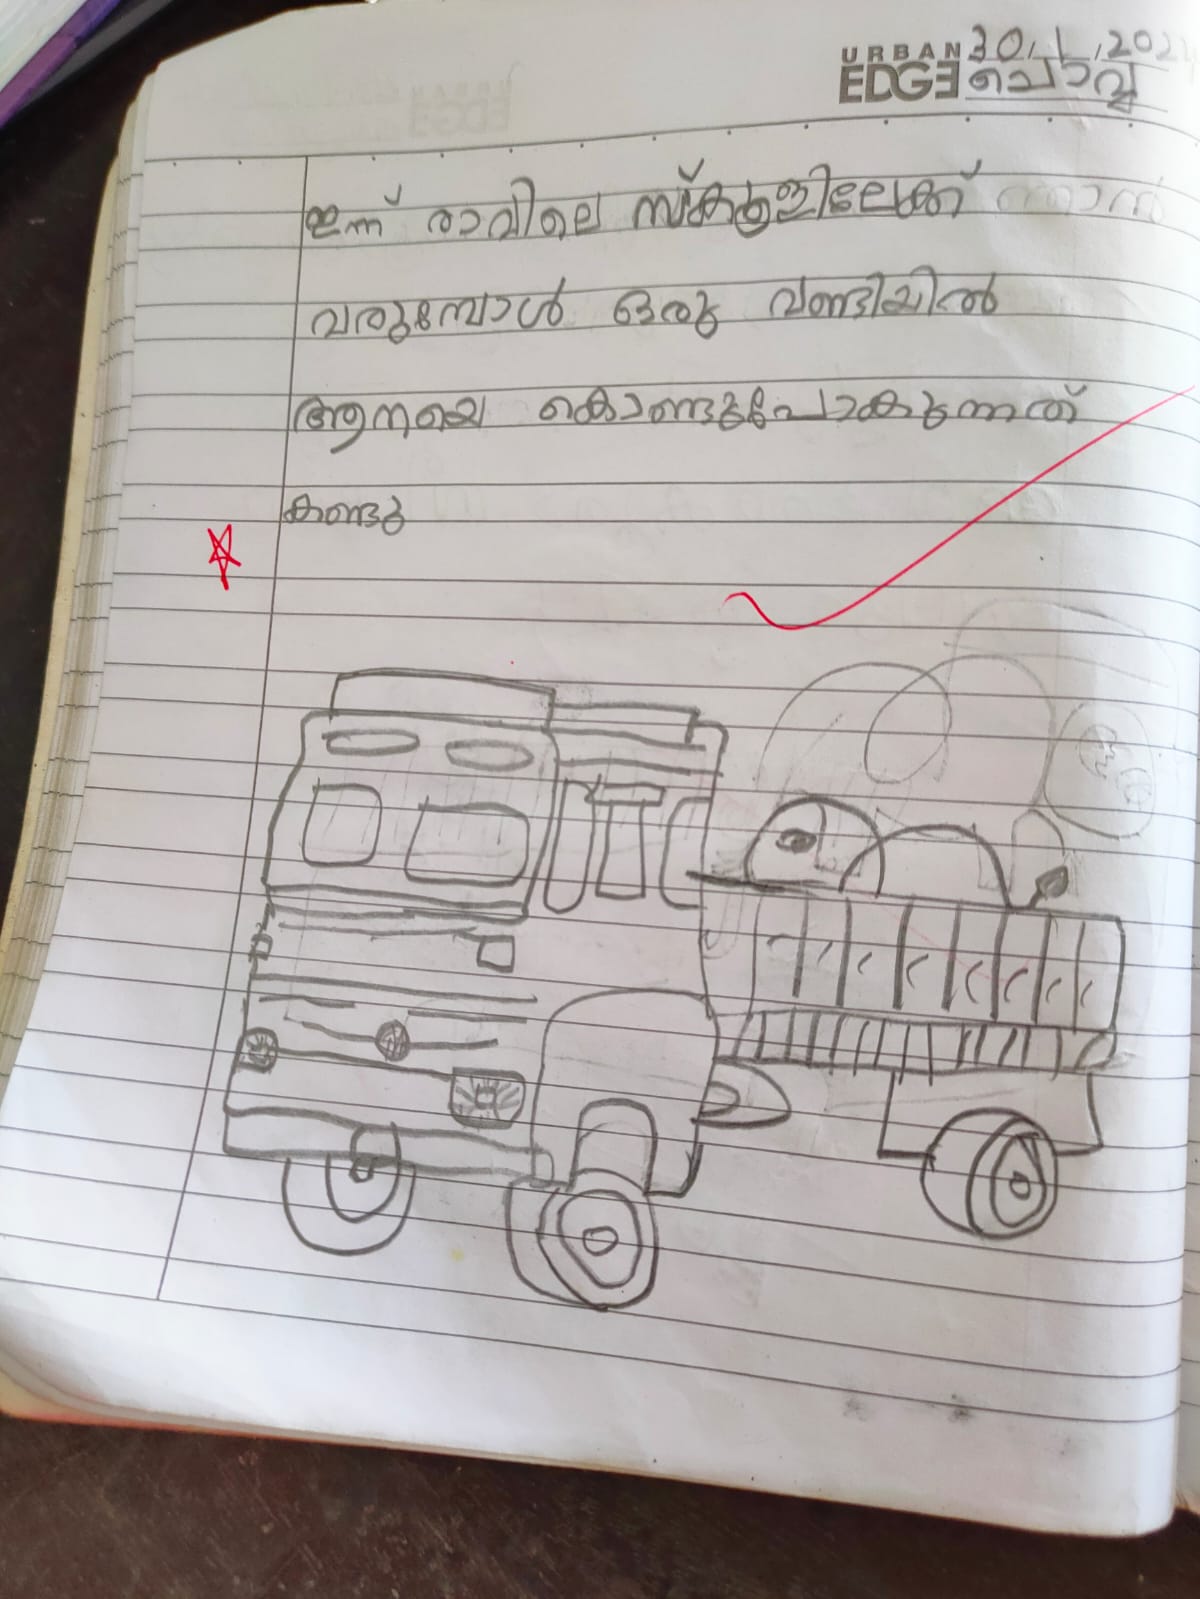 URBAN
EDGE
30.1.202
ചൊവ്വ
ഇന്ന് രാവിലെ സ്കൂളിലേക്ക് ഞാൻ
വരുമ്പോൾ ഒരു വണ്ടിയിൽ
ആനയെ കൊണ്ടുപോകുന്നത്
കണ്ടു